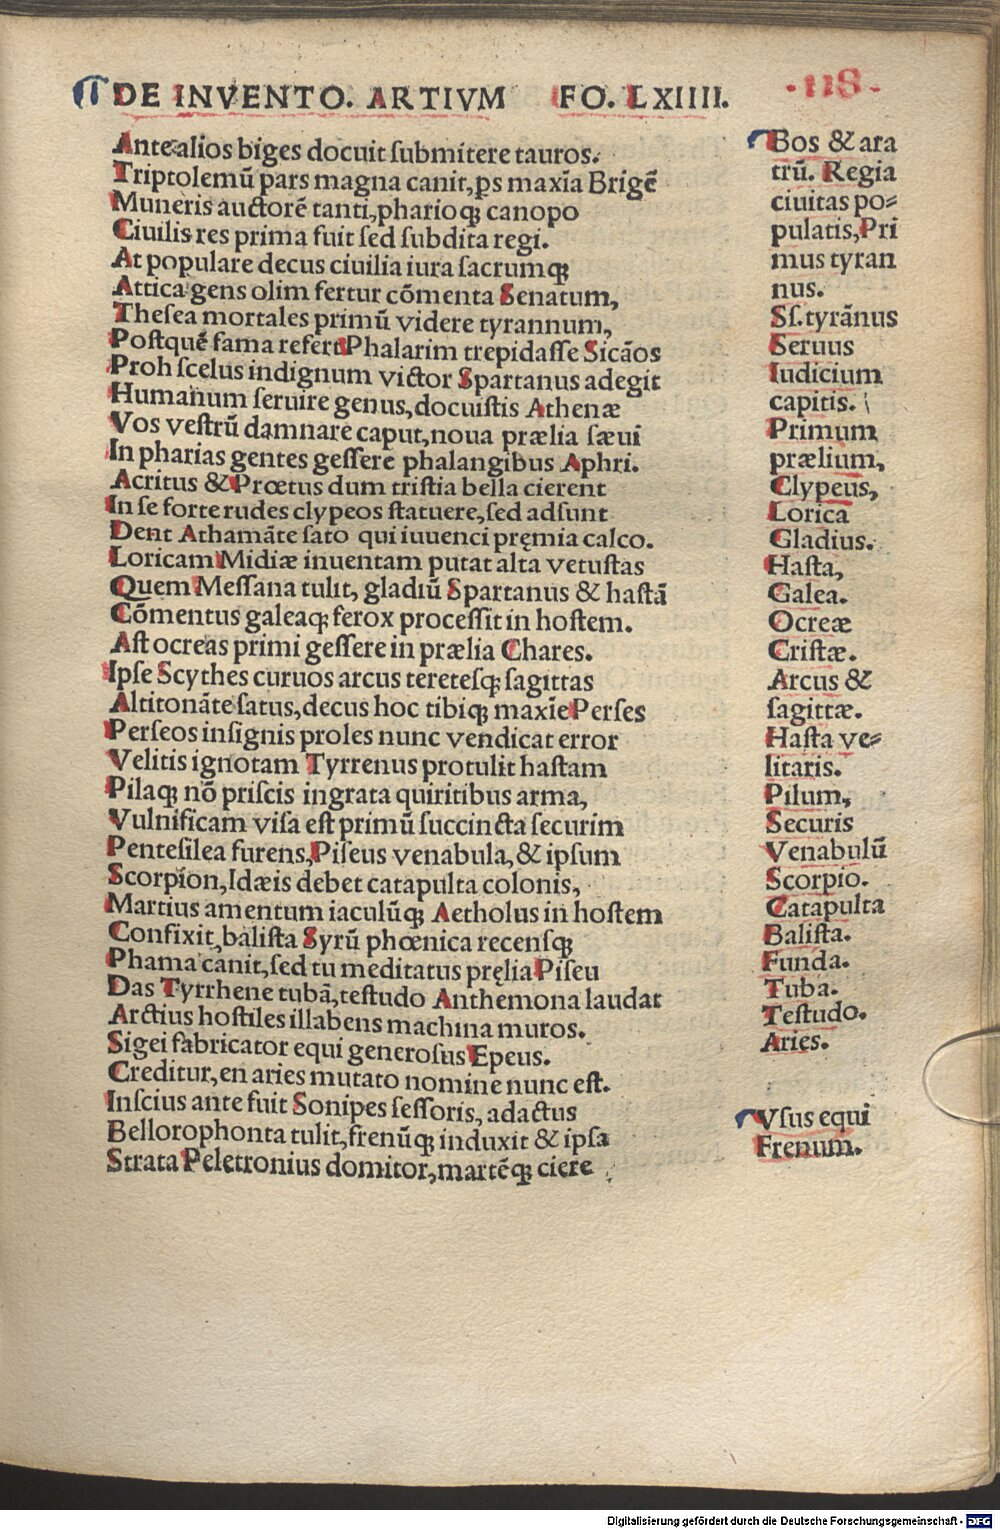 DE INVENTO. ARTIVM FO. LXIIII.
·118·
Ante alios biges docuit ſubmitere tauros.
Triptolemũ pars magna canit, ꝑs maxĩa Brigẽ
Muneris auctorẽ tanti, pharioqꝫ canopo
Ciuilis res prima fuit ſed ſubdita regi.
At populare decus ciuilia iura ſacrumqꝫ
Attica gens olim fertur cõmenta Senatum,
Theſea mortales primũ videre tyrannum,
Poſtquẽ fama refert Phalarim trepidaſſe Sicãos
Proh ſcelus indignum victor Spartanus adegit
Humanum ſeruire genus, docuiſtis Athenæ
Vos veſtrũ damnare caput, noua prælia ſæui
In pharias gentes geſſere phalangibus Aphri.
Acritus & Prœtus dum triſtia bella cierent
In ſe forte rudes clypeos ſtatuere, ſed adſunt
Dent Athamãte ſato qui iuuenci pręmia calco.
Loricam Midiæ inuentam putat alta vetuſtas
Quem Meſſana tulit, gladiũ Spartanus & haſtã
Cõmentus galeaqꝫ ferox proceſſit in hoſtem.
Aſt ocreas primi geſſere in prælia Chares.
Ipſe Scythes curuos arcus tereteſqꝫ ſagittas
Altitonãte ſatus, decus hoc tibiqꝫ maxĩe Perſes
Perſeos inſignis proles nunc vendicat error
Velitis ignotam Tyrrenus protulit haſtam
Pilaqꝫ nõ priſcis ingrata quiritibus arma,
Vulnificam viſa eſt primũ ſuccincta ſecurim
Penteſilea furens, Piſeus venabula, & ipſum
Scorpion, Idæis debet catapulta colonis,
Martius amentum iaculũqꝫ Aetholus in hoſtem
Confixit, baliſta Syrũ phœnica recenſqꝫ
Phama canit, ſed tu meditatus pręlia Piſeu
Das Tyrrhene tubã, teſtudo Anthemona laudat
Arctius hoſtiles illabens machina muros.
Sigei fabricator equi generoſus Epeus.
Creditur, en aries mutato nomine nunc eſt.
Inſcius ante fuit Sonipes ſeſſoris, adactus
Bellorophonta tulit, frenũqꝫ induxit & ipſa
Strata Peletronius domitor, martẽqꝫ ciere
Bos & ara
trũ. Regia
ciuitas po=
pulatis, Pri
mus tyran
nus.
Sſ. tyrãnus
Seruus
Iudicium
capitis.
Primum
prælium,
Clypeus,
Lorica
Gladius.
Haſta,
Galea.
Ocreæ
Criſtæ.
Arcus &
ſagittæ.
Haſta ve=
litaris.
Pilum,
Securis
Venabulũ
Scorpio.
Catapulta
Baliſta.
Funda.
Tuba.
Teſtudo.
Aries.
Vſus equi
Frenum.
Digitalisierung gefördert durch die Deutsche Forschungsgemeinschaft - DFG